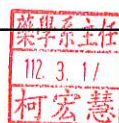 藥學系主任
112. 3. 17
柯宏慧